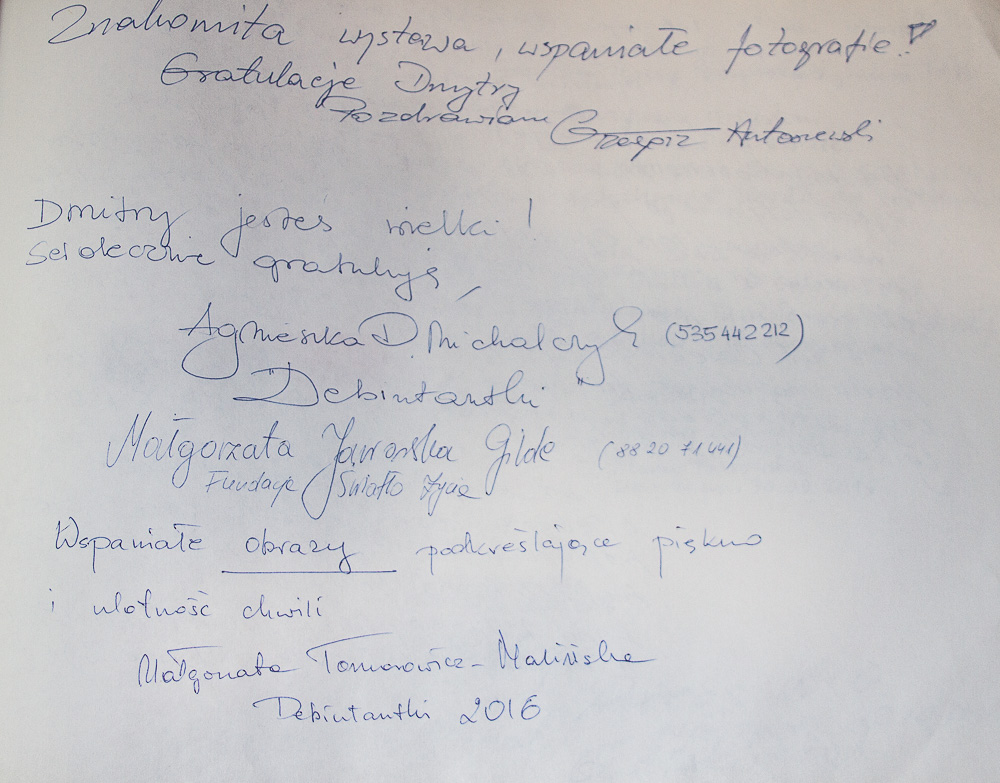 Znakomita wystawa, wspaniałe fotografie!
Gratulacje Dmytry
Pozdrawiam Grzegorz
Dmitry jesteś wielki!
Serdecznie gratuluję,
Agnieszka D. Michalczyk (535442212)
"Debiutantki"
Małgorzata Jaworska Gilde (88 20 71 441)
Fundacja Światło Życia
Wspaniałe obrazy podkreślające piękno
i ulotność chwili
Małgorzata Tomorowicz-Malińska
Debiutantki 2016